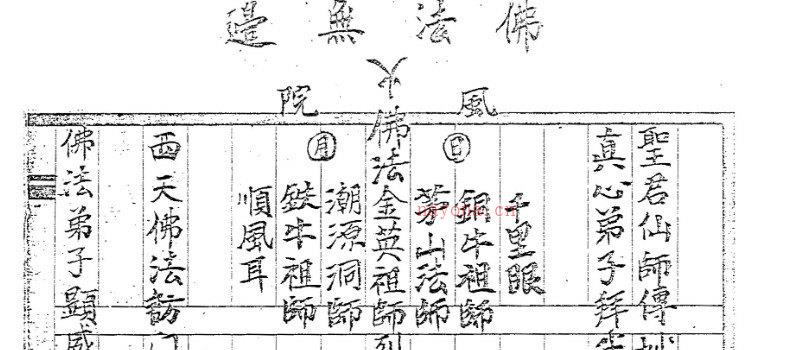 佛法無邊
鳳院
聖君仙師傳
真心弟子拜
千里眼
銅牛祖師
日
茅山法師
佛法金英祖師列
月
潮源洞師
鉄牛祖師
順風耳
西天佛法訪
佛法弟子顯威